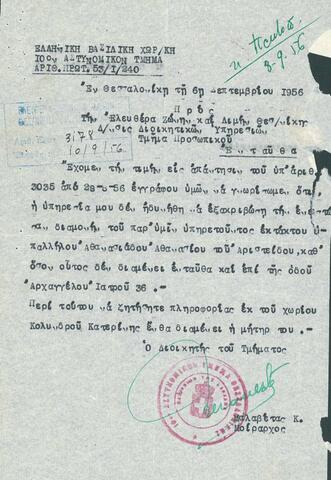 ΕΛΛΗΝΙΚΗ ΒΑΣΙΛΙΚΗ ΧΩΡ/ΚΗ
ΙΟΟΝ ΑΣΤΥΝΟΜΙΚΟΝ ΤΜΗΜΑ
ΑΡΙΘ.ΠΡΩΤ.53/1/240
8-9.56
Εν Θεσσαλονίκη τῇ 6ῃ Σεπτεμβρίου 1956
Π ρ ὸ ς
Τὴν Ελευθέρα Ζώνην καὶ Λιμὴν Θεσ/νίκης
Δ/σις Διοικητικῶν Υπηρεσιῶν
Τμῆμα Προσωπικοῦ
Ε ν τ α ῦ θ α
3178
10/9/56
Εχομεν τὴν τιμὴν εἰς ἀπάντησιν τοῦ ὑπ'ἀριθ.
3035 ἀπὸ 28-8-56 ἐγγράφου ὑμῶν νὰ γνωρίσωμεν, ὅτι
ἡ ὑπηρεσία μου δὲν ἠδυνήθη νὰ ἐξακριβώση τὴν
διαμονὴν τοῦ παρ'ὑμῖν ὑπηρετοῦντος ἐκτάκτου
ὑπαλλήλου Αθανασιάδου Αθανασίου τοῦ Αριστείδου, καθ'
ὅσον οὗτος δὲν διαμένει ἐνταῦθα καὶ ἐπὶ τῆς ὁδοῦ
Αρχαγγέλου Ιατροῦ 36 .-
Περὶ τούτου νὰ ζητήσητε πληροφορίας ἐκ τοῦ χωρίου
Κολυνδροῦ Κατερίνης ἔνθα διαμένει ἡ μήτηρ του .-
Ο Διοικητὴς τοῦ Τμήματος
Μαλαβέτας Κ.
Μοίραρχος